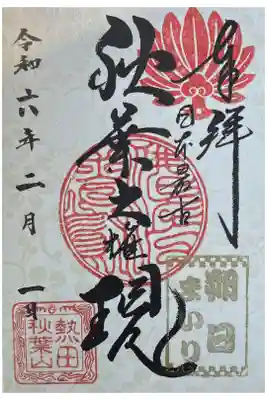 奉拝
日本最古
朔日
まいり
秋葉大権現
令和六年二月一日
熱田
秋葉山